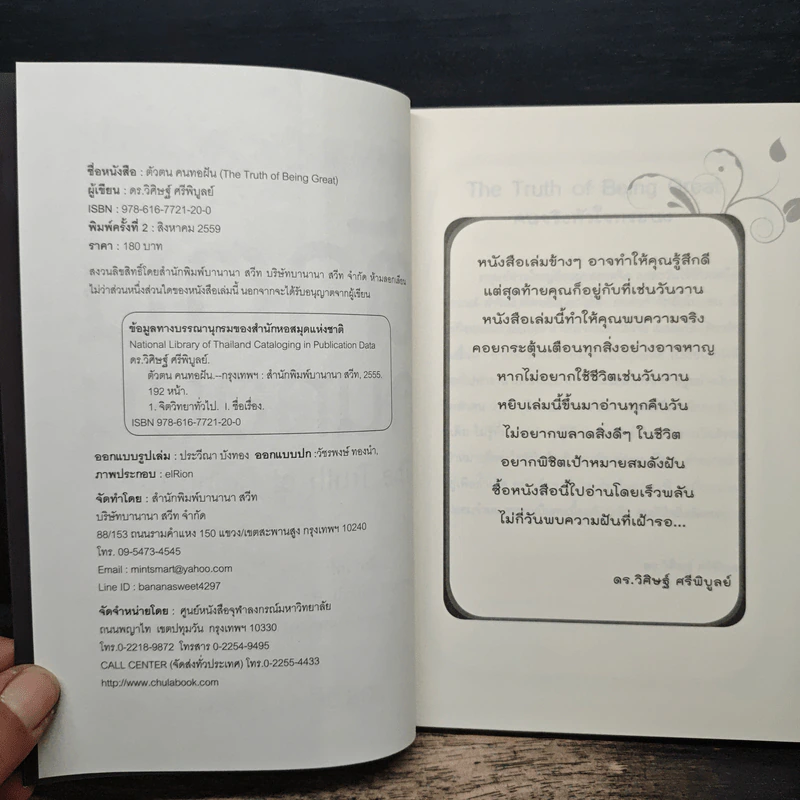 ชื่อหนังสือ : ตัวตน คนทอฝัน (The Truth of Being Great)
ผู้เขียน : ดร.วิศิษฐ์ ศรีพิบูลย์
ISBN : 978-616-7721-20-0
พิมพ์ครั้งที่ 2 : สิงหาคม 2559
ราคา : 180 บาท
สงวนลิขสิทธิ์โดยสำนักพิมพ์บานานา สวีท บริษัทบานานา สวีท จำกัด ห้ามลอกเลียน
ไม่ว่าส่วนหนึ่งส่วนใดของหนังสือเล่มนี้ นอกจากจะได้รับอนุญาตจากผู้เขียน
ข้อมูลทางบรรณานุกรมของสำนักหอสมุดแห่งชาติ
National Library of Thailand Cataloging in Publication Data
ดร.วิศิษฐ์ ศรีพิบูลย์.
ตัวตน คนทอฝัน.--กรุงเทพฯ : สำนักพิมพ์บานานา สวีท, 2555.
192 หน้า.
1. จิตวิทยาทั่วไป. I. ชื่อเรื่อง.
ISBN 978-616-7721-20-0
ออกแบบรูปเล่ม : ประวีณา บังทอง ออกแบบปก :วัชรพงษ์ ทองนำ,
ภาพประกอบ : elRion
จัดทำโดย : สำนักพิมพ์บานานา สวีท
บริษัทบานานา สวีท จำกัด
88/153 ถนนรามคำแหง 150 แขวง/เขตสะพานสูง กรุงเทพฯ 10240
โทร. 09-5473-4545
Email : mintsmart@yahoo.com
Line ID : bananasweet4297
จัดจำหน่ายโดย : ศูนย์หนังสือจุฬาลงกรณ์มหาวิทยาลัย
ถนนพญาไท เขตปทุมวัน กรุงเทพฯ 10330
โทร.0-2218-9872 โทรสาร 0-2254-9495
CALL CENTER (จัดส่งทั่วประเทศ) โทร.0-2255-4433
http://www.chulabook.com
The Truth of Being Great
หนังสือเล่มข้างๆ อาจทำให้คุณรู้สึกดี
แต่สุดท้ายคุณก็อยู่กับที่เช่นวันวาน
หนังสือเล่มนี้ทำให้คุณพบความจริง
คอยกระตุ้นเตือนทุกสิ่งอย่างอาจหาญ
หากไม่อยากใช้ชีวิตเช่นวันวาน
หยิบเล่มนี้ขึ้นมาอ่านทุกคืนวัน
ไม่อยากพลาดสิ่งดีๆ ในชีวิต
อยากพิชิตเป้าหมายสมดังฝัน
ซื้อหนังสือนี้ไปอ่านโดยเร็วพลัน
ไม่กี่วันพบความฝันที่เฝ้ารอ...
ดร.วิศิษฐ์ ศรีพิบูลย์